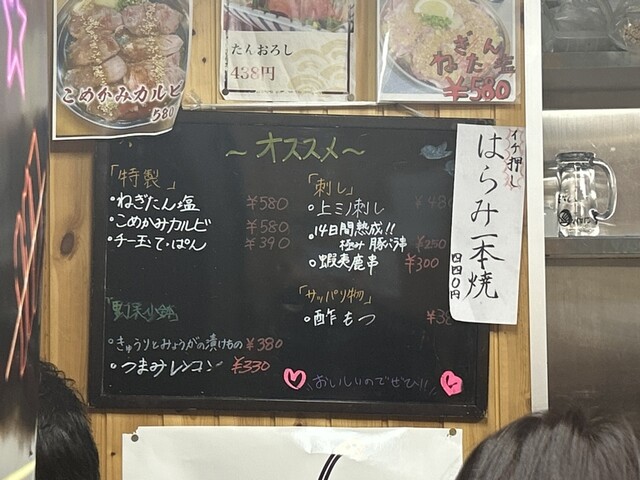 こめかみカルビ
580
たんおろし
438円
ねぎたん塩
¥580
～オススメ～
「特製」
・ねぎたん塩 ¥580
・こめかみカルビ ¥580
・チー玉て・ぱん ¥390
・きゅうりとみょうがの漬けもの ¥380
・つまみレンコン ¥330
「刺し」
・上ミノ刺し ¥480
・14日間熟成!!
極み豚バラ串 ¥250
・蝦夷鹿串 ¥300
「サッパリ物」
・酢もつ
おいしいのでぜひ!!
イチ押し
はらみ一本焼
四四〇円